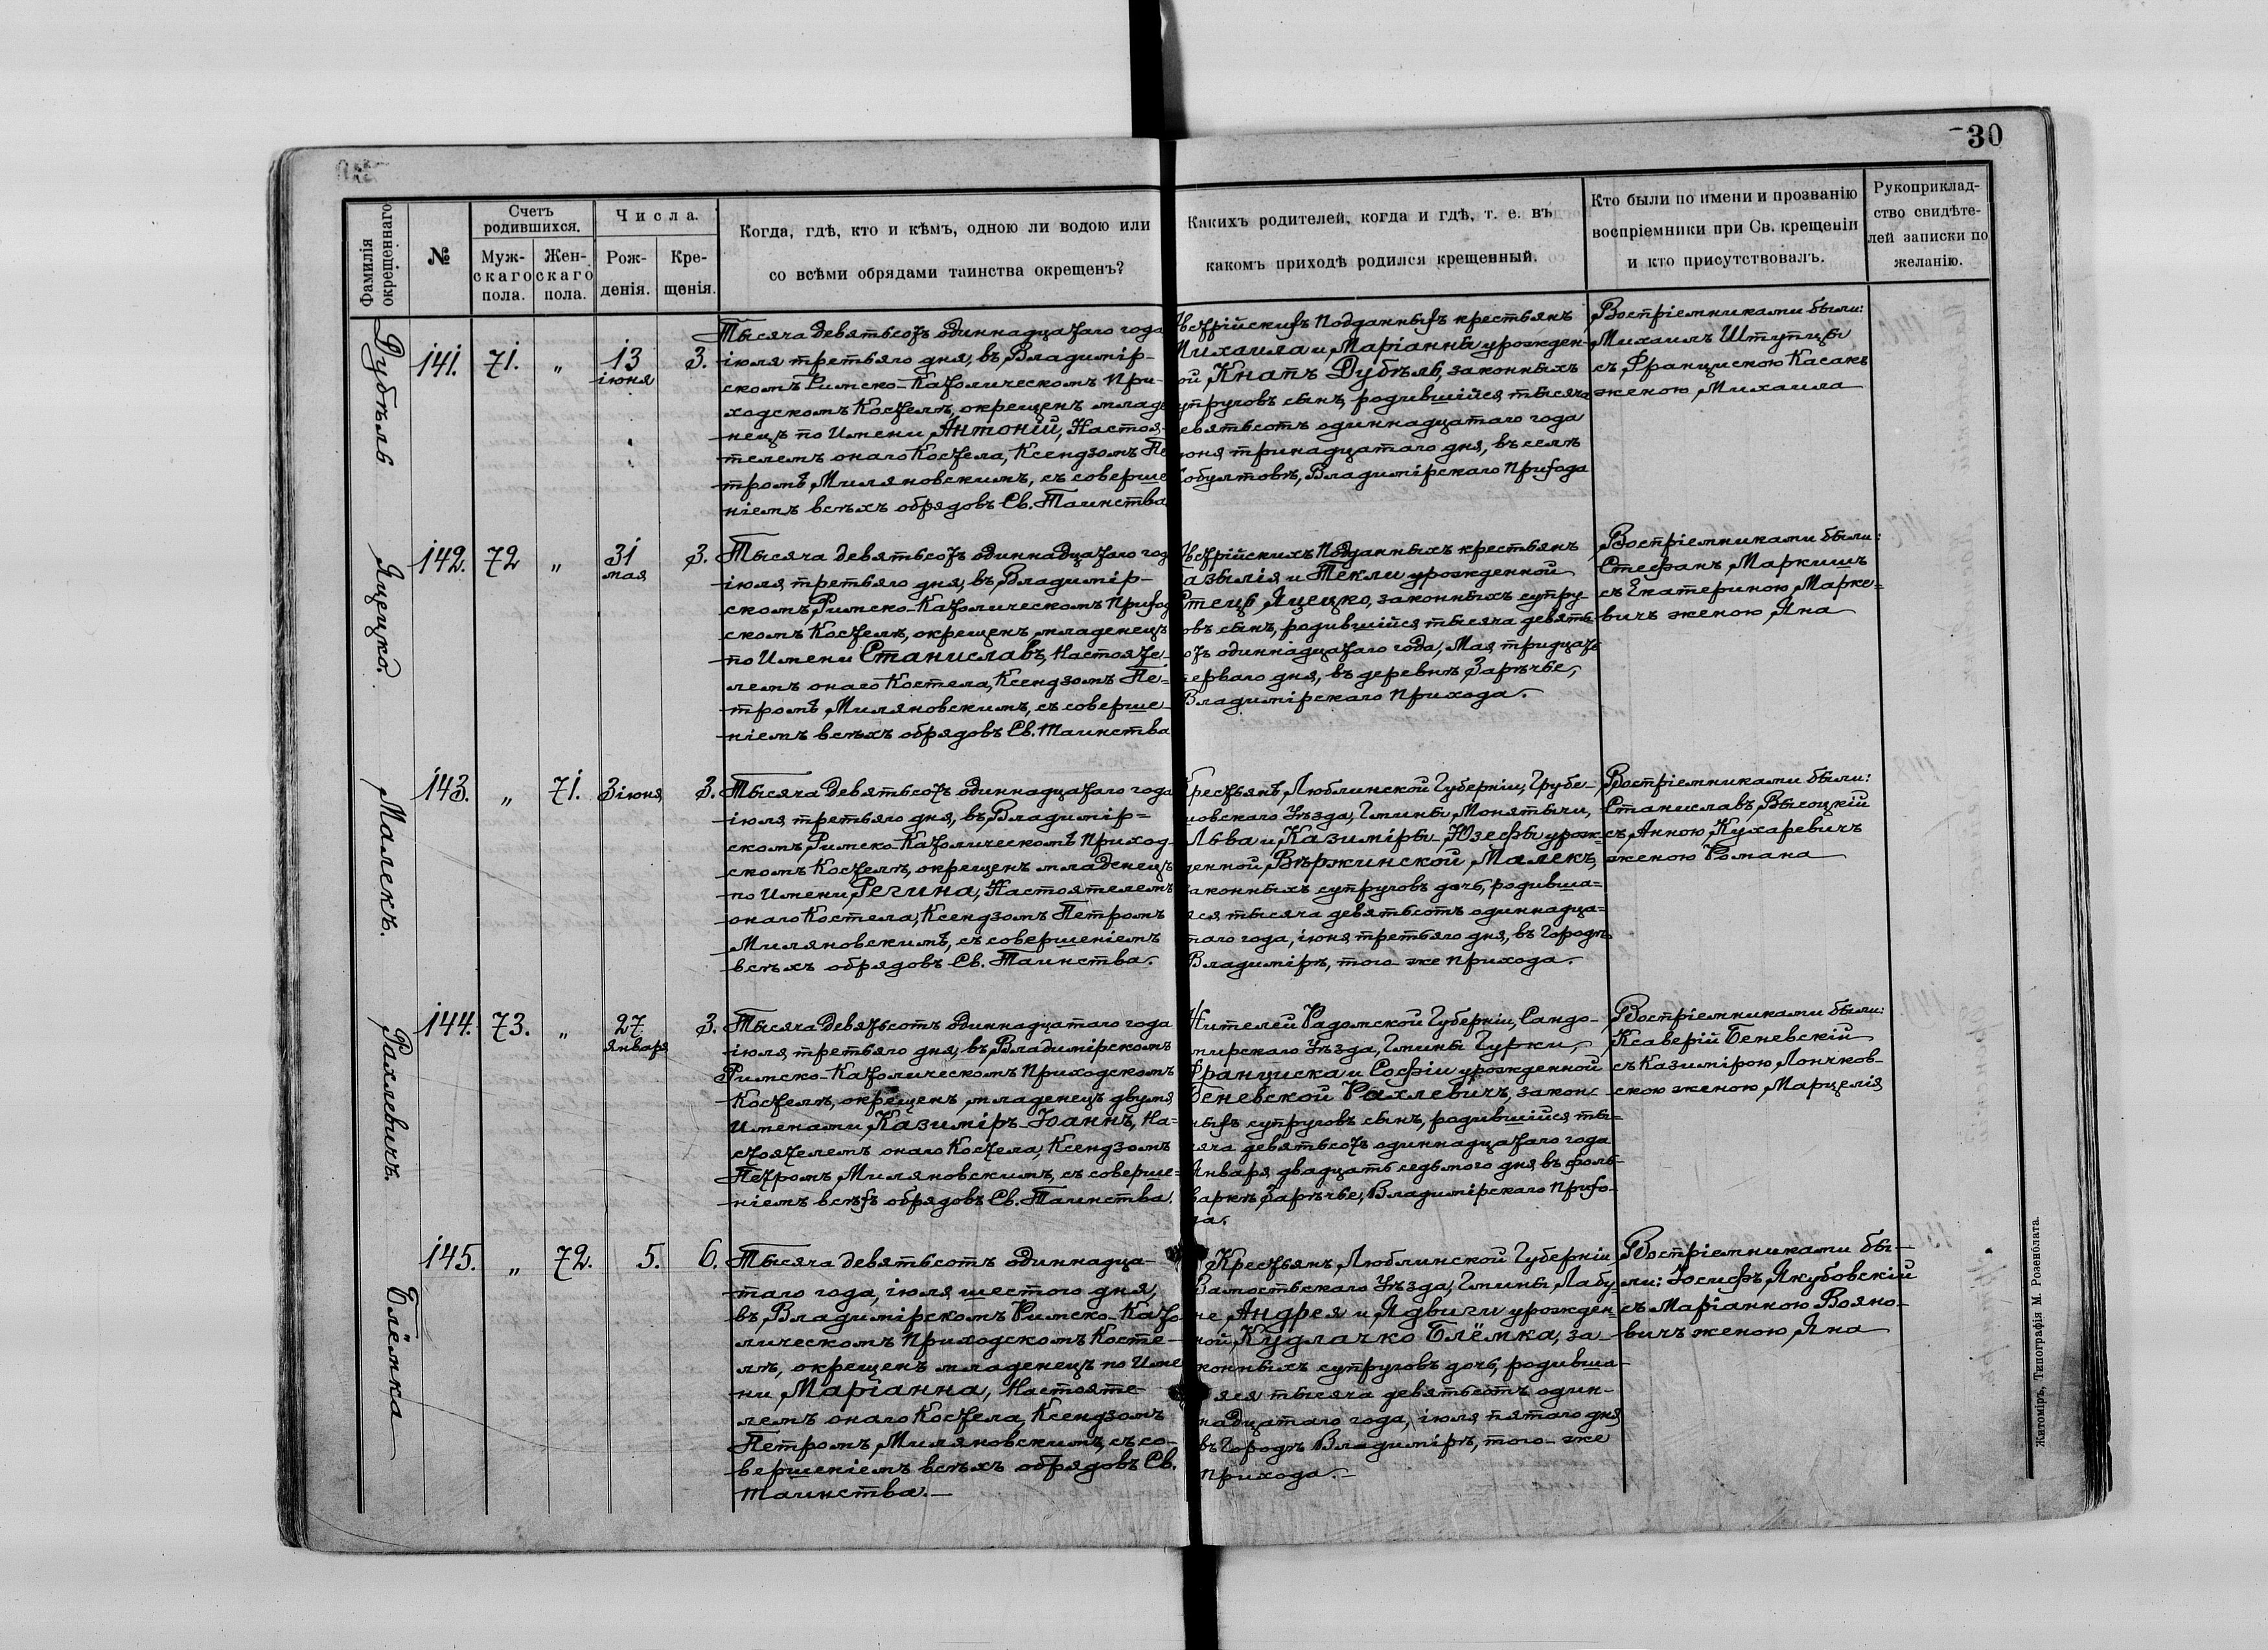 30
Фамилія окрещеннаго
№
Счетъ родившихся.
Муж-
скаго
пола.
Жен-
скаго
пола.
Числа.
Рож-
денія.
Кре-
щенія.
Когда, гдѣ, кто и кѣмъ, одною ли водою или
со всѣми обрядами таинства окрещенъ?
Какихъ родителей, когда и гдѣ, т. е. въ
какомъ приходѣ родился крещенный.
Кто были по имени и прозванію
воспріемники при Св. крещеніи
и кто присутствовалъ.
Рукоприклад-
ство свидѣте-
лей записки по
желанію.
Дубѣль
141. 71. „ 13 іюня 3.
Тысяча девятьсотъ одиннадцатаго года
іюля третьяго дня, въ Владимір-
скомъ Римско-Католическомъ При-
ходскомъ Костелѣ, окрещенъ младе
нецъ по Имени Антоній, Настоя-
телемъ онаго Костела, Ксендзомъ Пе
тромъ Миляновскимъ, съ соверше
ніемъ всѣхъ обрядовъ Св. Таинства
встрійскихъ Подданныхъ крестьянъ
Михаила и Маріанны урожден-
ой Кнапъ Дубѣль, законныхъ
упруговъ сынъ, родившійся тысяча
евятьсотъ одиннадцатаго года
юня тринадцатаго дня, въ селѣ
обултовѣ, Владимірскаго Прихода
Воспріемниками были:
Михаилъ Штупцы
съ Францискою Касакъ
женою Михаила
Яцецко.
142. 72 „ 31 мая 3.
Тысяча девятьсотъ одиннадцатаго год
іюля третьяго дня, въ Владимір-
скомъ Римско-Католическомъ Приход
скомъ Костелѣ, окрещенъ младенецъ
по Имени Станиславъ, Настояте-
лемъ онаго Костела, Ксендзомъ Пе-
тромъ Миляновскимъ, съ соверше-
ніемъ всѣхъ обрядовъ Св. Таинства
встрійскихъ Подданныхъ крестьянъ
азылія и Текли урожденной
Стець Яцецко, законныхъ супру-
овъ сынъ, родившійся тысяча девять
отъ одиннадцатаго года, Мая тридцать
ерваго дня, въ деревнѣ Зарѣчье,
Владимірскаго Прихода.
Воспріемниками были:
Стефанъ Маркишъ
съ Екатериною Марке-
вичъ женою Яна
Малекъ.
143. „ 71. 3 іюня 3.
Тысяча девятьсотъ одиннадцатаго года
іюля третьяго дня, въ Владимір-
скомъ Римско-Католическомъ Приход-
скомъ Костелѣ, окрещенъ младенецъ
по Имени Регина, Настоятелемъ
онаго Костела, Ксендзомъ Петромъ
Миляновскимъ, съ совершеніемъ
всѣхъ обрядовъ Св. Таинства.
Крестьянъ Люблинской Губерніи, Грубе-
шовскаго Уѣзда, Гмины Монятычи,
Льва и Казиміры-Юзефы урож-
денной Вѣржинской Малекъ,
законныхъ супруговъ дочь, родивша-
яся тысяча девятьсотъ одиннадца-
таго года, іюня третьяго дня, въ Городѣ
Владимірѣ, того-же прихода.
Воспріемниками были:
Станиславъ Высоцкій
съ Анною Кухаревичъ
женою Романа
Рахлевичъ.
144. 73. „ 27 Января 3.
Тысяча девятьсотъ одиннадцатаго года
іюля третьяго дня, въ Владимірскомъ
Римско-Католическомъ Приходскомъ
Костелѣ, окрещенъ младенецъ двумя
Именами Казиміръ-Іоаннъ, На-
стоятелемъ онаго Костела, Ксендзомъ
Петромъ Миляновскимъ, съ соверше-
ніемъ всѣхъ обрядовъ Св. Таинства.
Жителей Радомской Губерніи, Сандо-
мирскаго Уѣзда, Гмины Гурки,
Франциска и Софіи урожденной
Беневской Рахлевичъ, закон-
ныхъ супруговъ сынъ, родившійся ты-
сяча девятьсотъ одиннадцатаго года
Января двадцать седьмого дня, въ фоль-
варкѣ Зарѣчье, Владимірскаго Прихо-
да.
Воспріемниками были:
Ксаверій Беневскій
съ Казимірою Лончков-
скою женою Марцелія
Блёмка
145. „ 72. 5. 6.
Тысяча девятьсотъ одиннадца-
таго года, іюля шестого дня,
въ Владимірскомъ Римско-Като
лическомъ Приходскомъ Косте-
лѣ, окрещенъ младенецъ по Име
ни Маріанна, Настояте-
лемъ онаго Костела, Ксендзомъ
Петромъ Миляновскимъ, съ со-
вершеніемъ всѣхъ обрядовъ Св.
Таинства.—
Крестьянъ Люблинской Губерніи
Замостьскаго Уѣзда, Гмины Лабу-
не, Андрея и Ядвиги урожден-
ной Кудлачко Блёмка, за-
конныхъ супруговъ дочь, родивша-
яся тысяча девятьсотъ один-
надцатаго года, іюля пятаго дня
въ Городѣ Владимірѣ, того-же
прихода.—
Воспріемниками бы-
ли: Іосифъ Якубовскій
съ Маріанною Вояно-
вичъ женою Яна
Житоміръ, Типографія М. Розенблата.